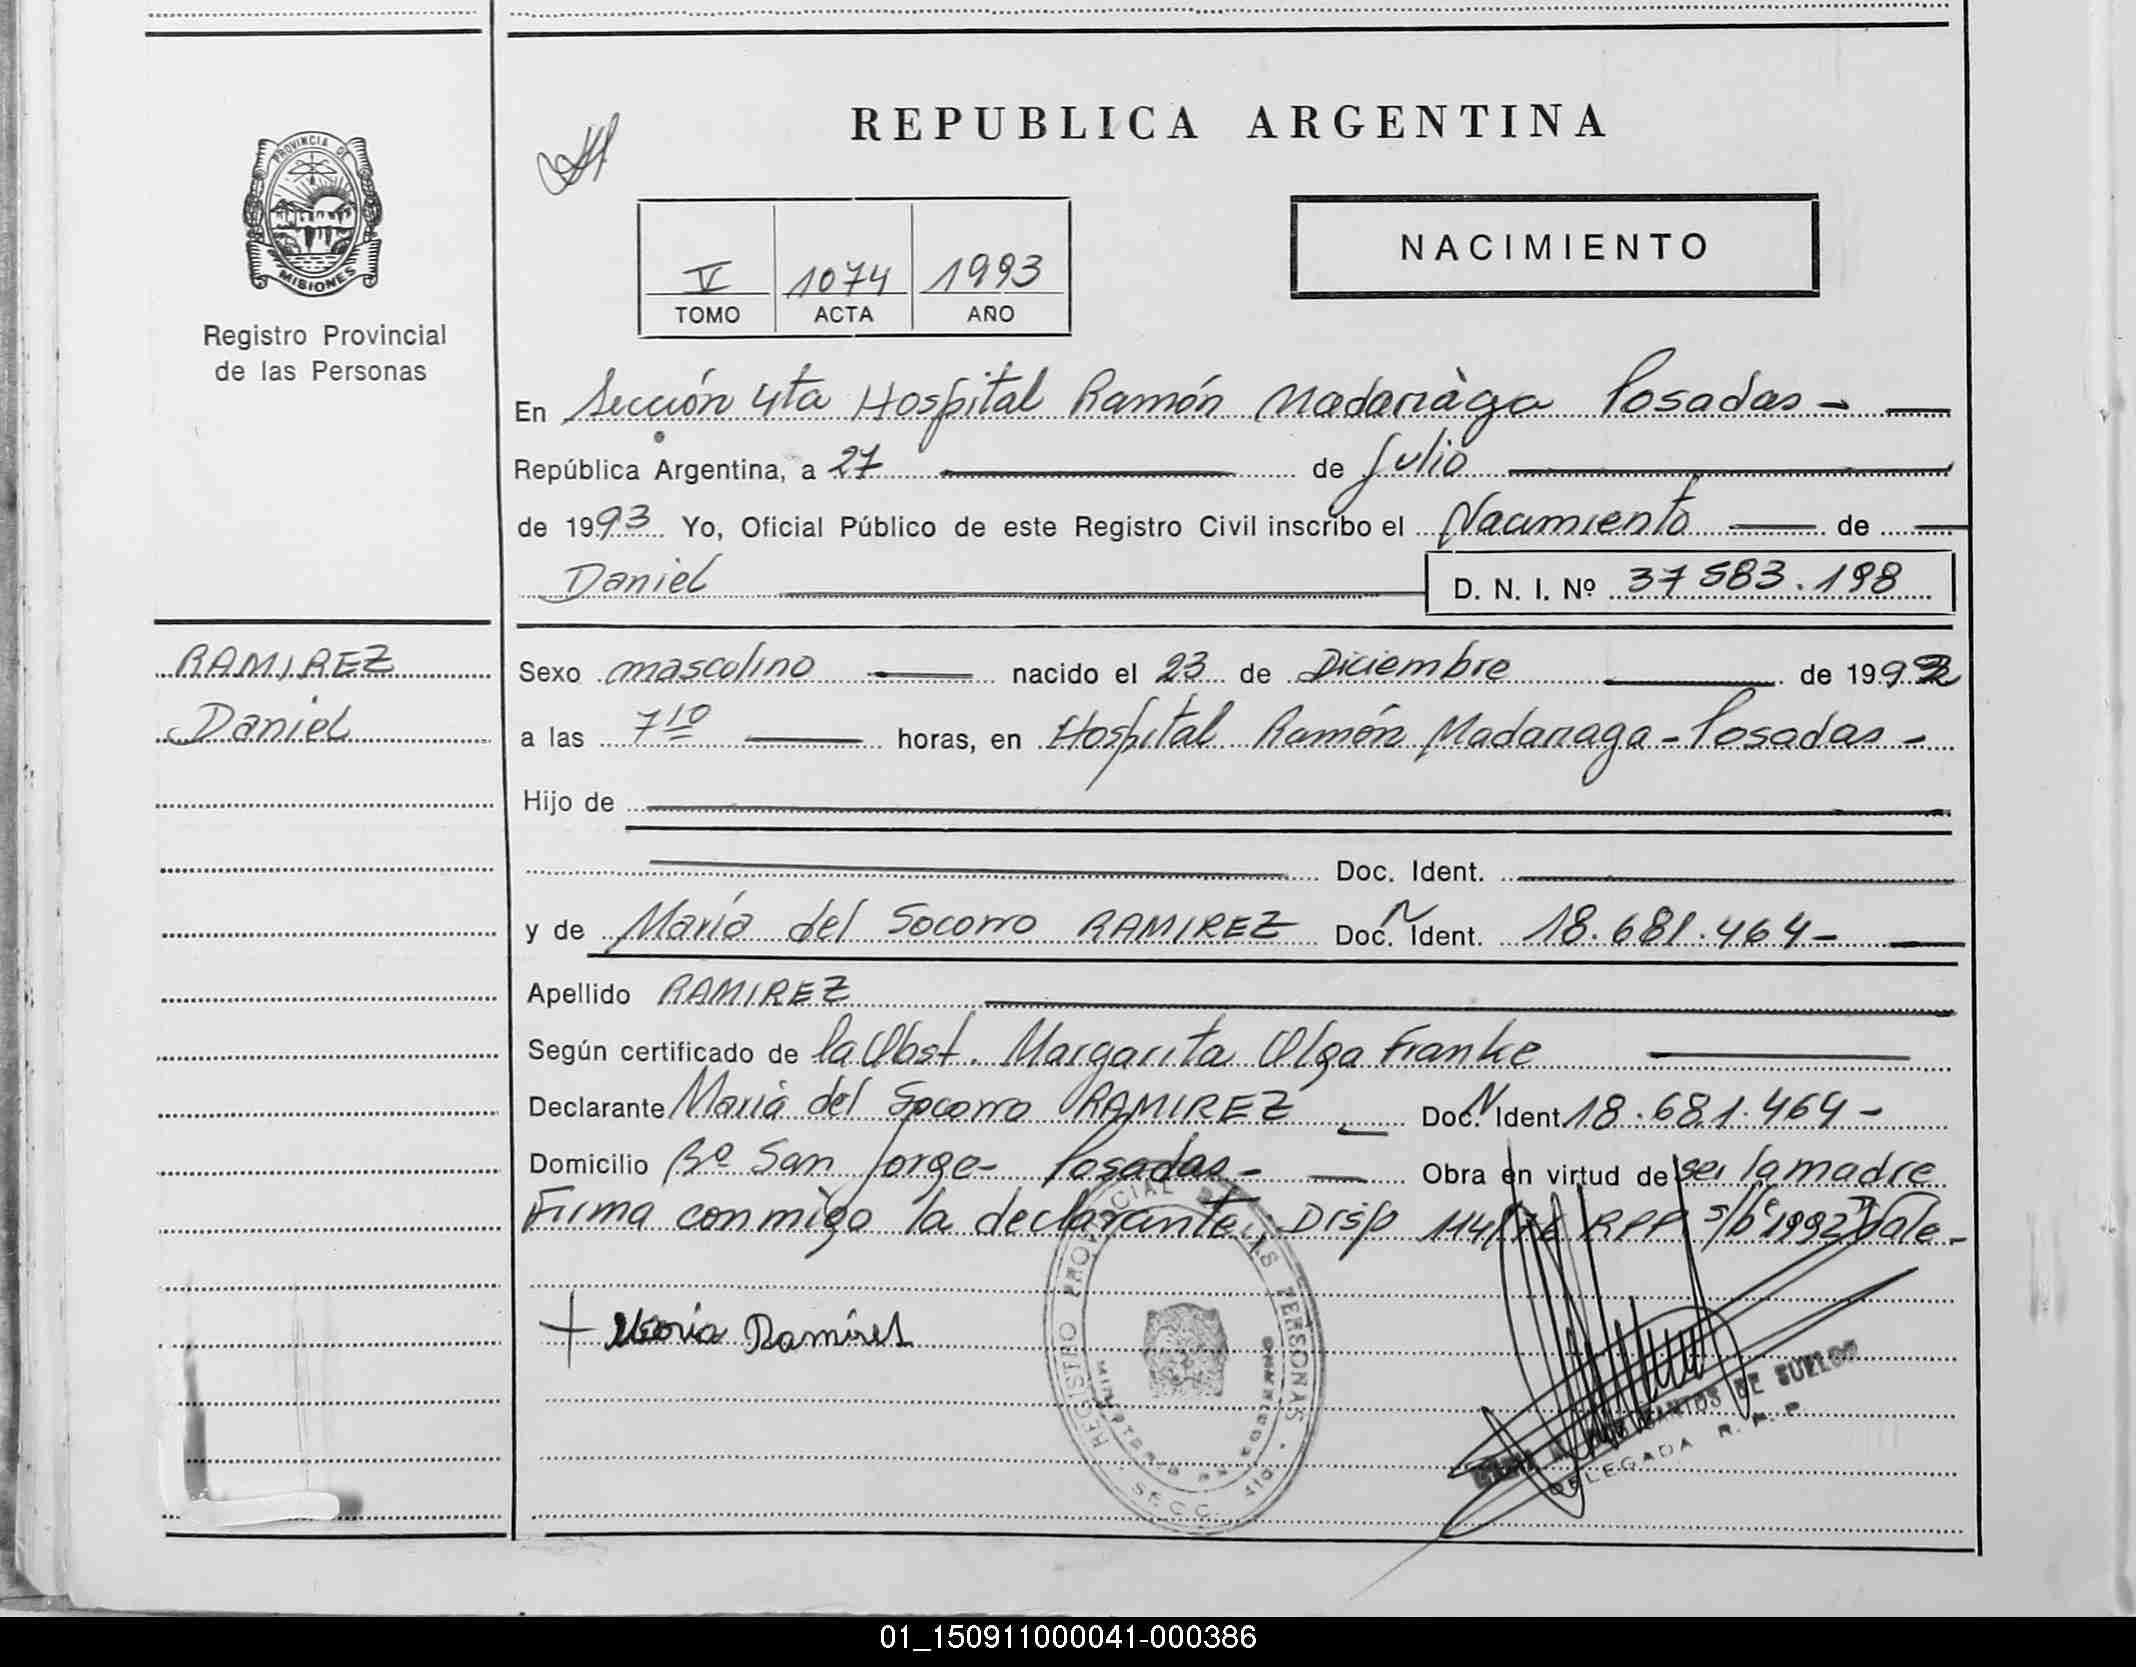 REPUBLICA ARGENTINA
PROVINCIA DE
MISIONES
Registro Provincial
de las Personas
NACIMIENTO
V 1074 1993
TOMO ACTA AÑO
En Sección 4ta Hospital Ramón Madariàga Posadas -
República Argentina, a 27 de Julio
de 1993 Yo, Oficial Público de este Registro Civil inscribo el Nacimiento de
Daniel D. N. I. Nº 37 583.198
RAMIREZ
Daniel
Sexo masculino nacido el 23 de Diciembre de 1992
a las 7 10 horas, en Hospital Ramón Madariaga - Posadas -
Hijo de
Doc. Ident.
y de María del Socorro RAMIREZ Doc. N Ident. 18.681.464 -
Apellido RAMIREZ
Según certificado de la Obst. Margarita Olga Franke
Declarante María del Socorro RAMIREZ Doc. N Ident. 18.681.464 -
Domicilio Bº San Jorge - Posadas - Obra en virtud de ser la madre
Firma conmigo la declarante, Disp 114/76 RPP s/b 1992 Vale -
+ Maria Ramirez
REGISTRO PROVINCIAL DE LAS PERSONAS
MINISTERIO DE GOBIERNO
SECC. 4TA
DE SUELDO
DELEGADA R. P. P.
01_150911000041-000386